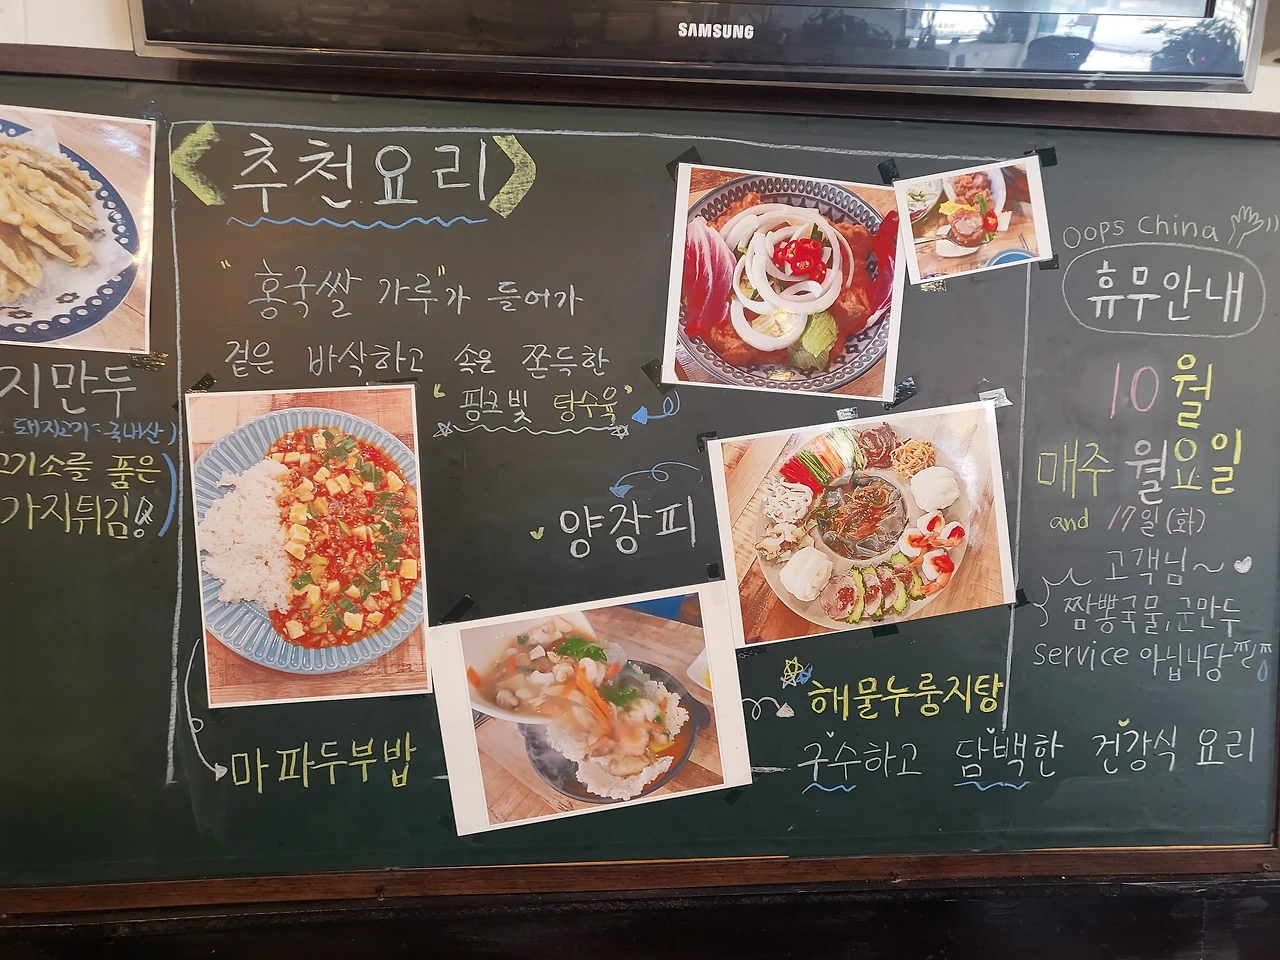 SAMSUNG
지만두
돼지고기:국내산)
고기소를 품은
가지튀김
<추천요리>
"홍국쌀 가루"가 들어가
겉은 바삭하고 속은 쫀득한
"핑크빛 탕수육"
양장피
마파두부밥
해물누룽지탕
구수하고 담백한 건강식 요리
Oops China
휴무안내
10월
매주 월요일
and 17일(화)
고객님~
짬뽕국물,군만두
service 아닙니당